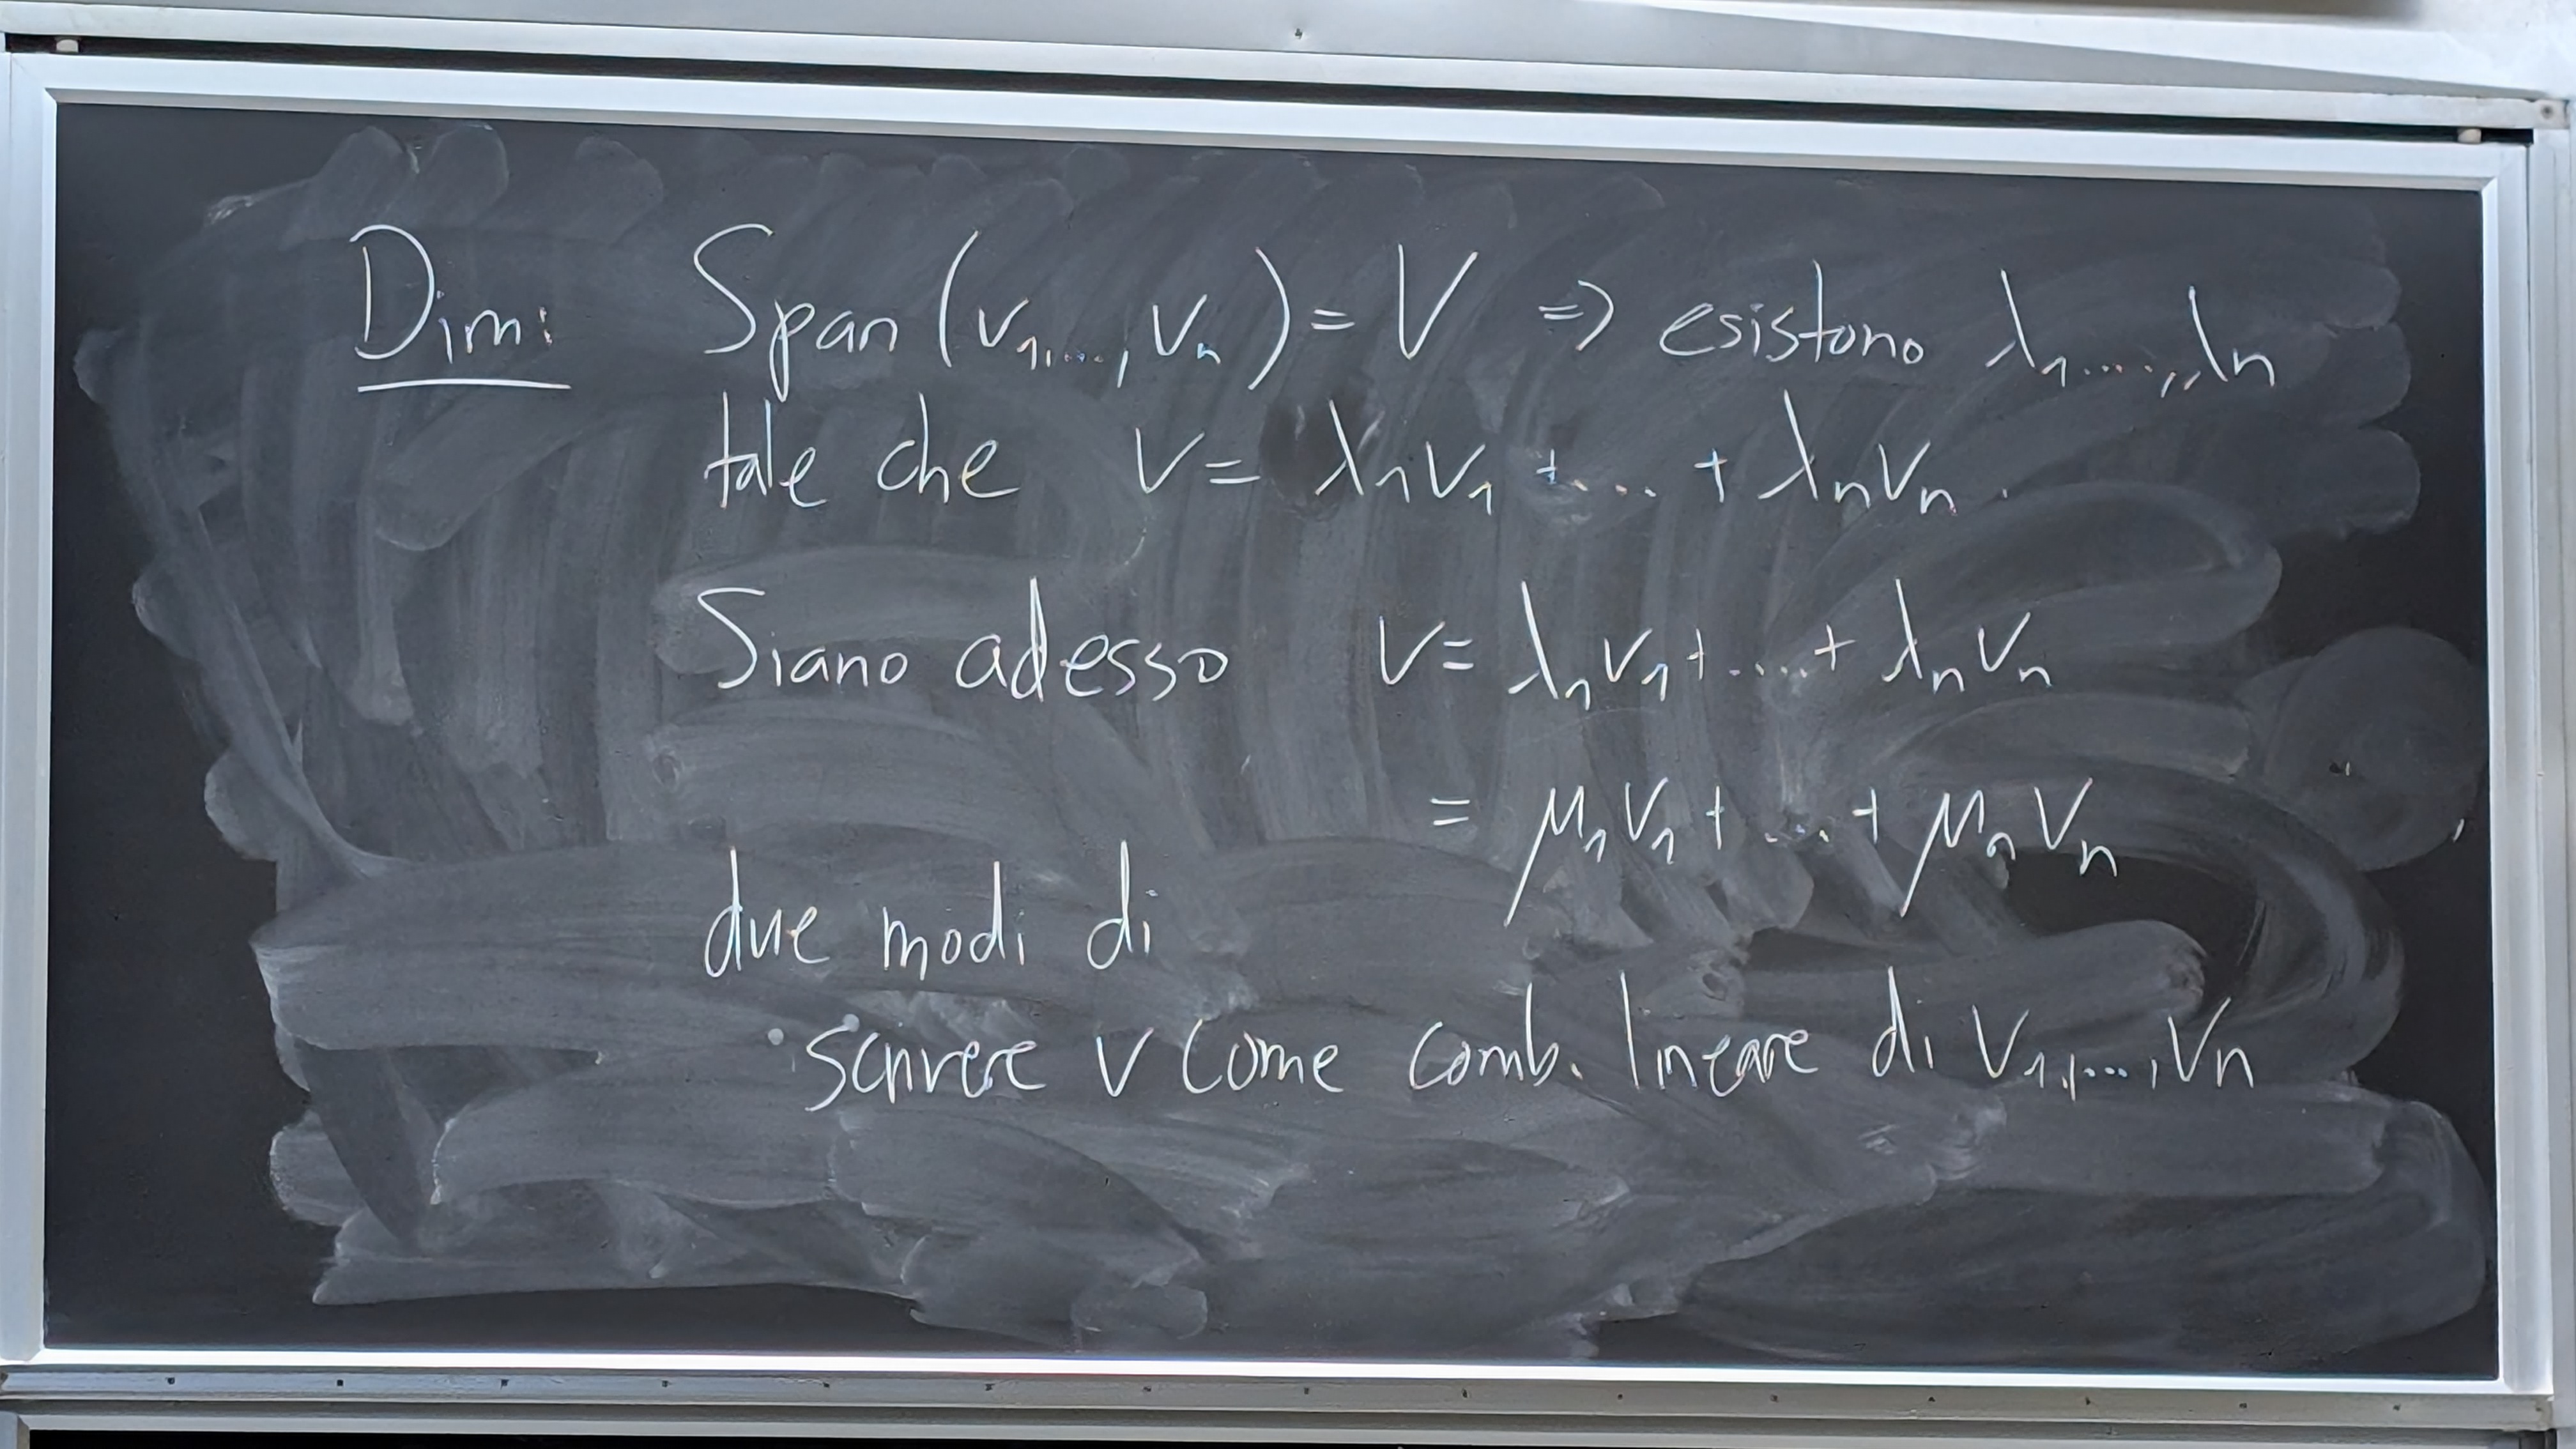 Dim: Span (v₁,...,vₙ) = V => esistono λ₁....,,λₙ
tale che v = λ₁v₁ +.... + λₙvₙ.
Siano adesso v = λ₁v₁ + .... + λₙvₙ
= μ₁v₁ + ... + μₙvₙ
due modi di
scrivere v come comb. lineare di v₁,...,vₙ